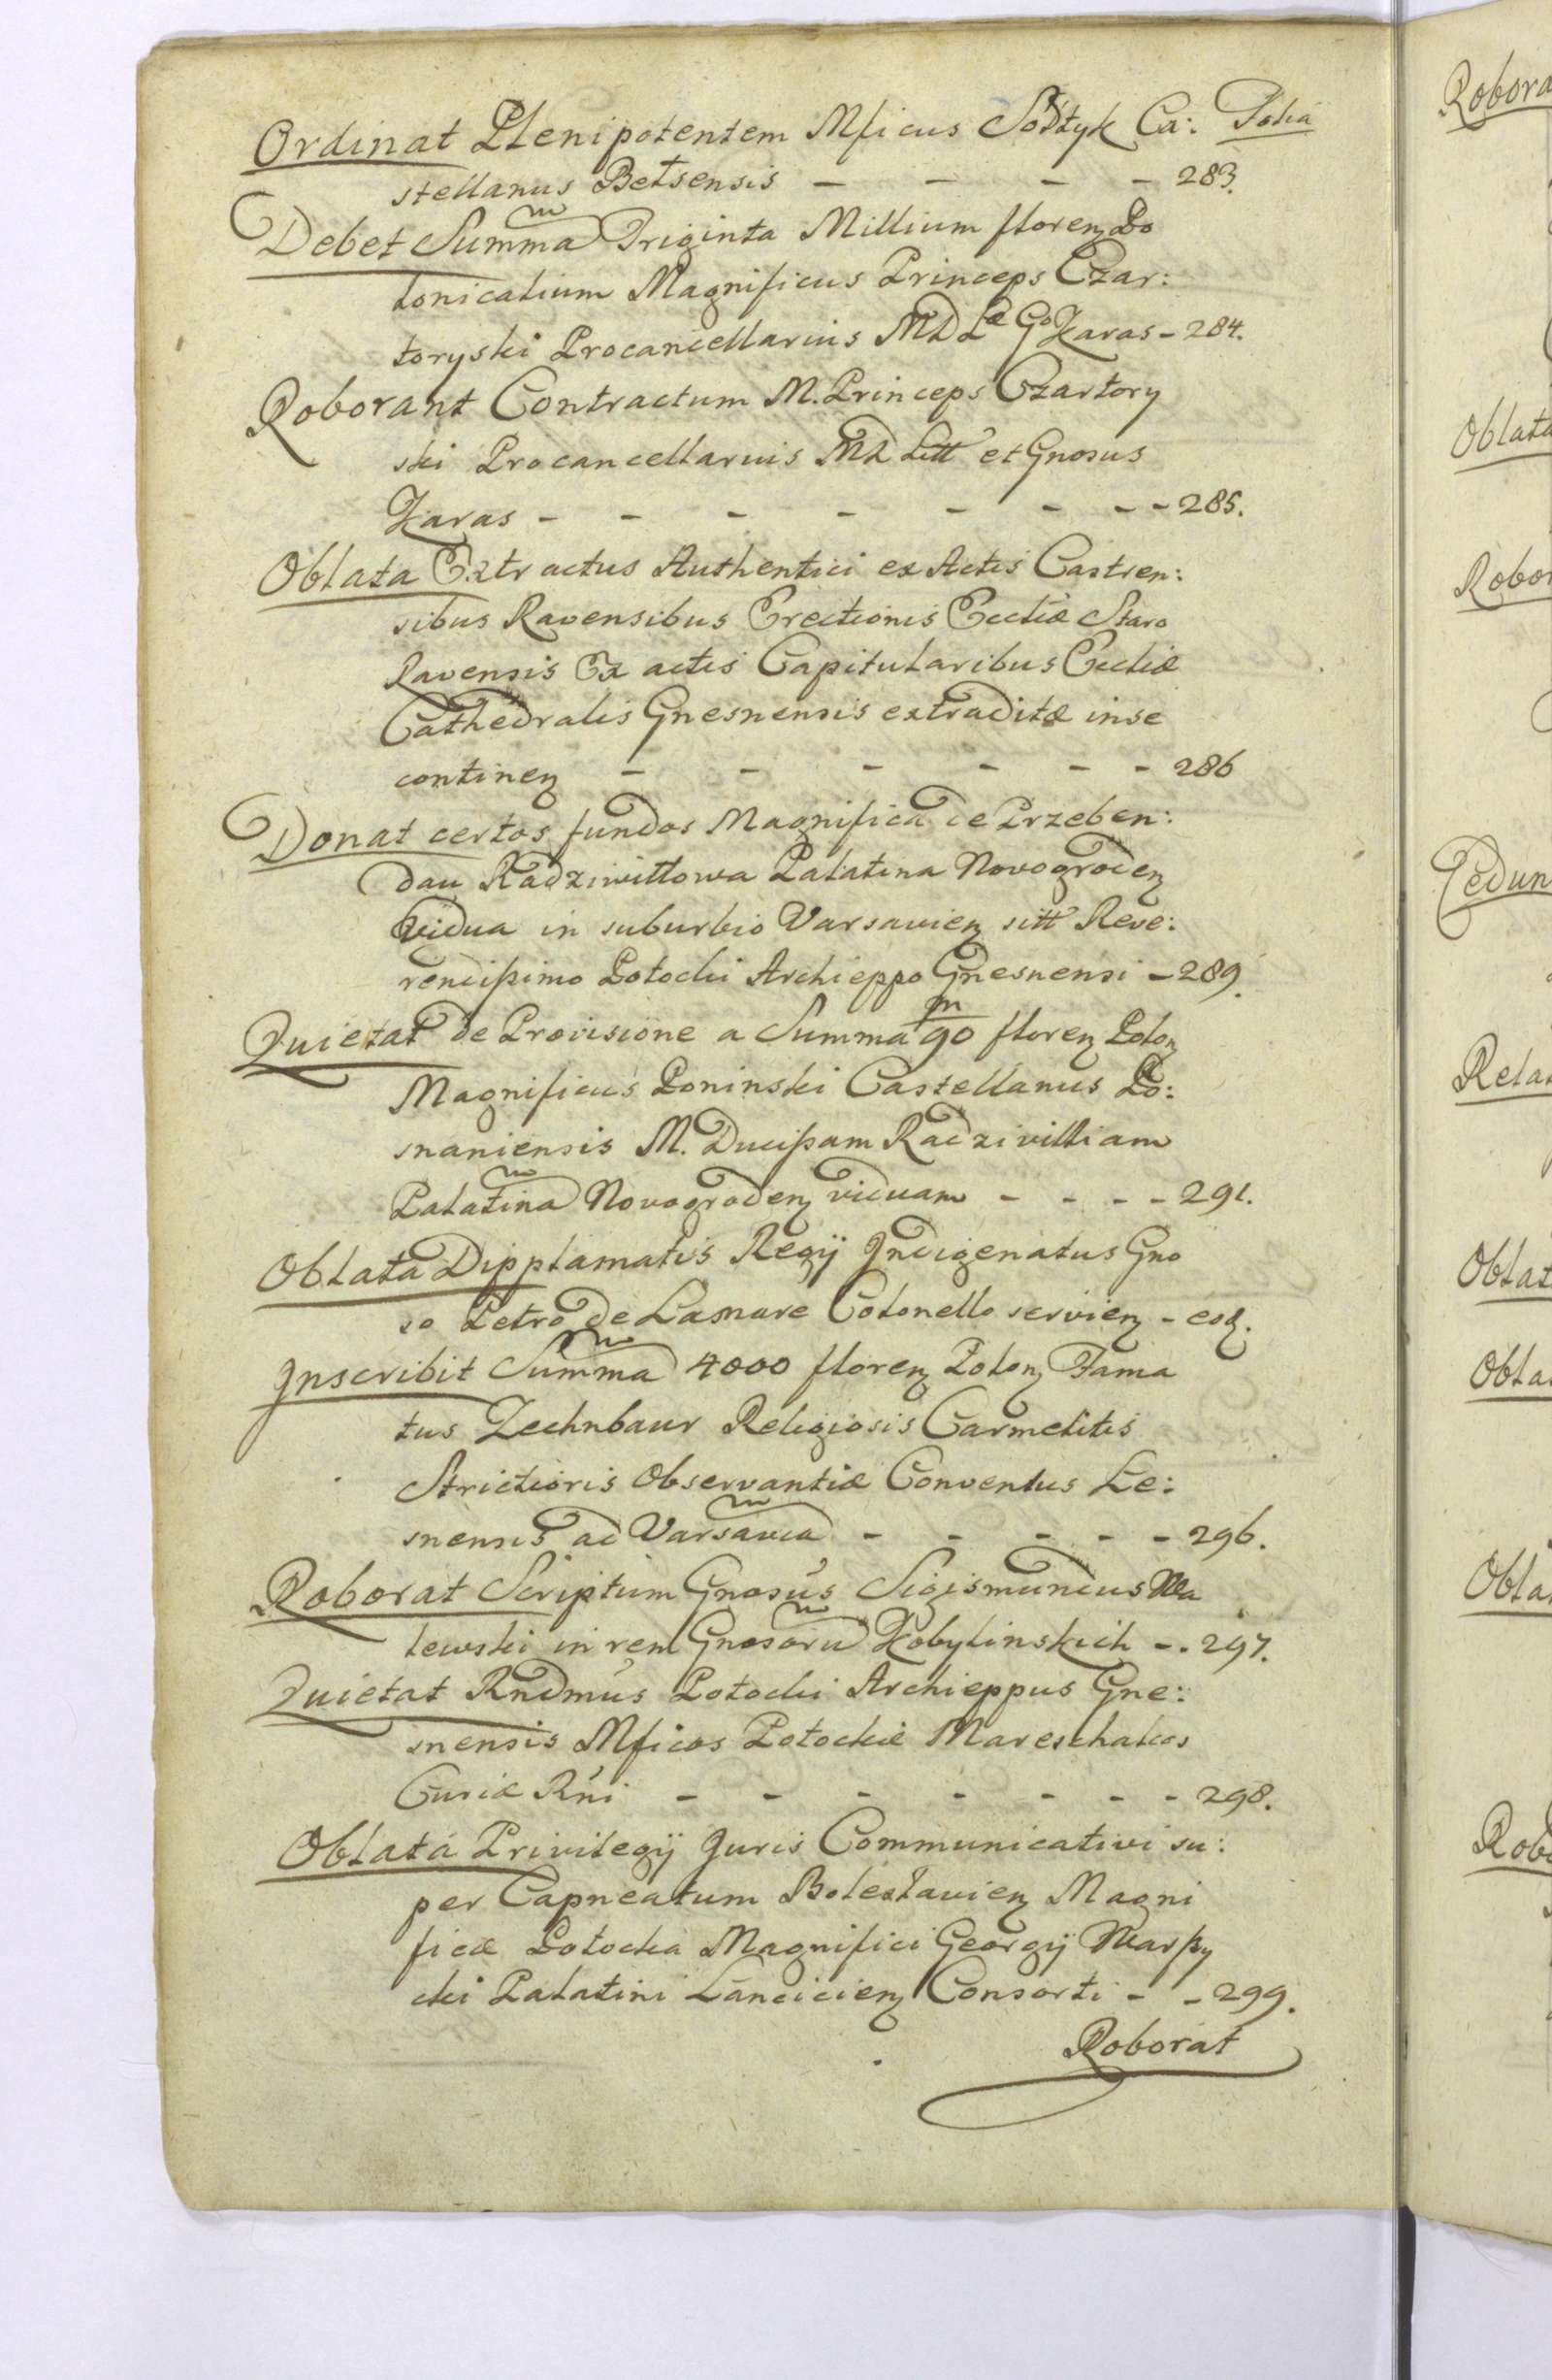 Folia
Ordinat Plenipotentem Mficus Sołtyk Ca:
stellanus Bełsensis - - - - 283.
Debet Summa Triginta Millium florenz Po
lonicalium Magnificus Princeps Czar:
toryski Procancellarius MDL Go Karas - 284.
Roborant Contractum M. Princeps Czartory
ski Procancellarius MD Litt et Gnosus
Karas - - - - - - - - 285.
Oblata Extractus Authentici ex Actis Castren:
sibus Ravensibus Erectionis Eccliæ Staro
Ravensis Ex actis Capitularibus Eccliæ
Cathedralis Gnesnensis extraditæ in se
continenz - - - - - - 286
Donat certos fundos Magnifica de Przeben:
dau Radziwiłłowa Palatina Novogrodenz
vidua in suburbio Varsavienz sitt Reve:
rendissimo Potocki Archieppo Gnesnensi - 289.
Quietat de Provisione a Summa 90 m florenz Polonz
Magnificus Poninski Castellanus Po:
snaniensis M. Ducissam Radziviłliam
Palatina Novogrodenz viduam - - - - 291.
Oblata Dipplamatis Regij Indigenatus Gno
so Petro de Lamare Colonello servienz - eod.
Inscribit Summa 4000 florenz Polonz Fama
tus Zechnbaur Religiosis Carmelitis
Strictioris Observantiæ Conventus Le:
snensis ad Varsavia - - - - - 296.
Roborat Scriptum Gnosus Sigismundus Wa
lewski in rem Gnosoru Kobylinskich - . 297.
Quietat Rndmus Potocki Archieppus Gne:
snensis Mficos Potockie Mareschalcos
Curiæ Rni - - - - - - - 298.
Oblata Privilegij Juris Communicativi su:
per Capneatum Bolesłavienz Magni
ficæ Potocka Magnifici Georgij Warszy
cki Palatini Lancicienz Consorti - - 299.
Roborat
Robora
Oblata
Robor
Cedun
Relat
Oblat
Oblat
Oblat
Robo